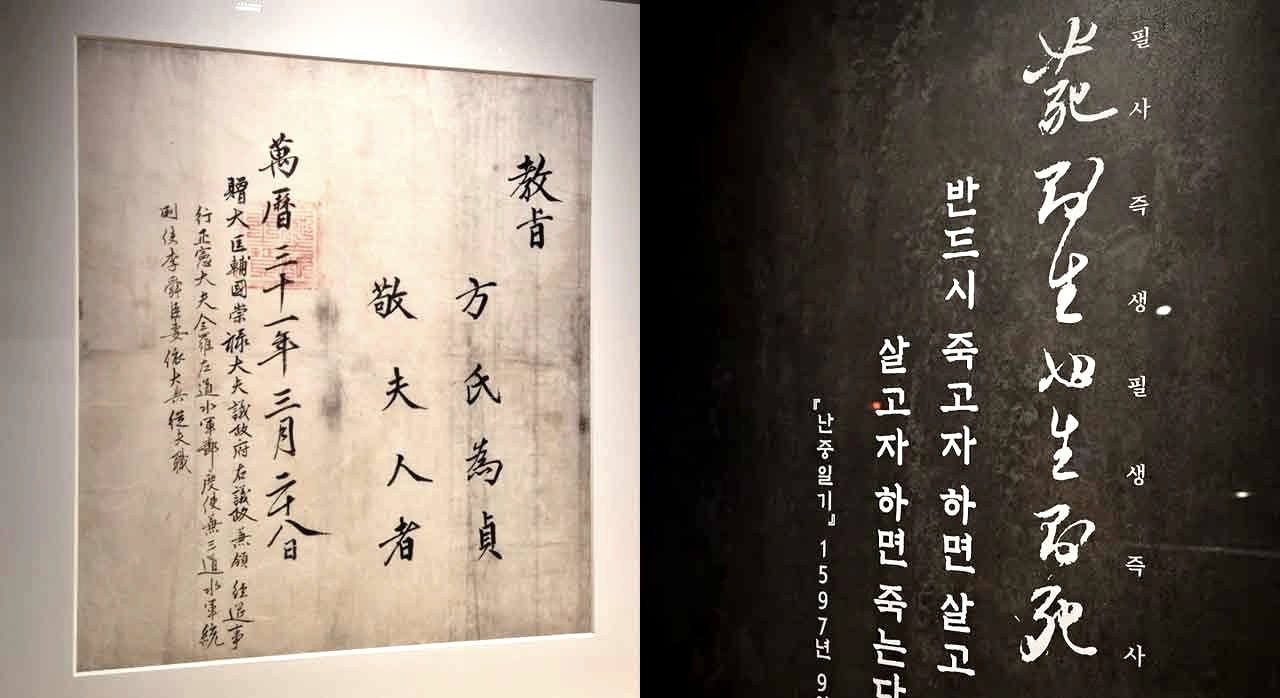 教旨
方氏為貞
敬夫人者
萬曆三十一年三月二十八日
贈大匡輔國崇祿大夫議政府右議政兼領 經筵事
行正憲大夫全羅左道水軍節度使兼三道水軍統
制使李舜臣妻依大典從夫職
필사즉생필생즉사
必死則生必生則死
반드시 죽고자 하면 살고
살고자 하면 죽는다
『난중일기』 1597년 9월